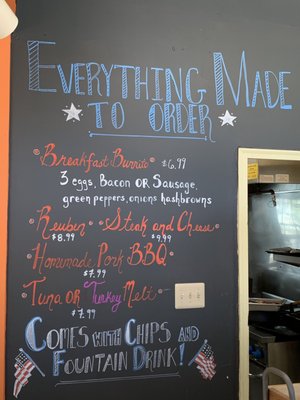 Everything Made
to Order
Breakfast Burrito $6.99
3 eggs, Bacon OR Sausage,
green peppers, onions hashbrowns
Reuben Steak and Cheese
$8.99 $9.99
Homemade Pork BBQ
$7.99
Tuna OR Turkey Melt
$7.99
Comes with Chips and
Fountain Drink!